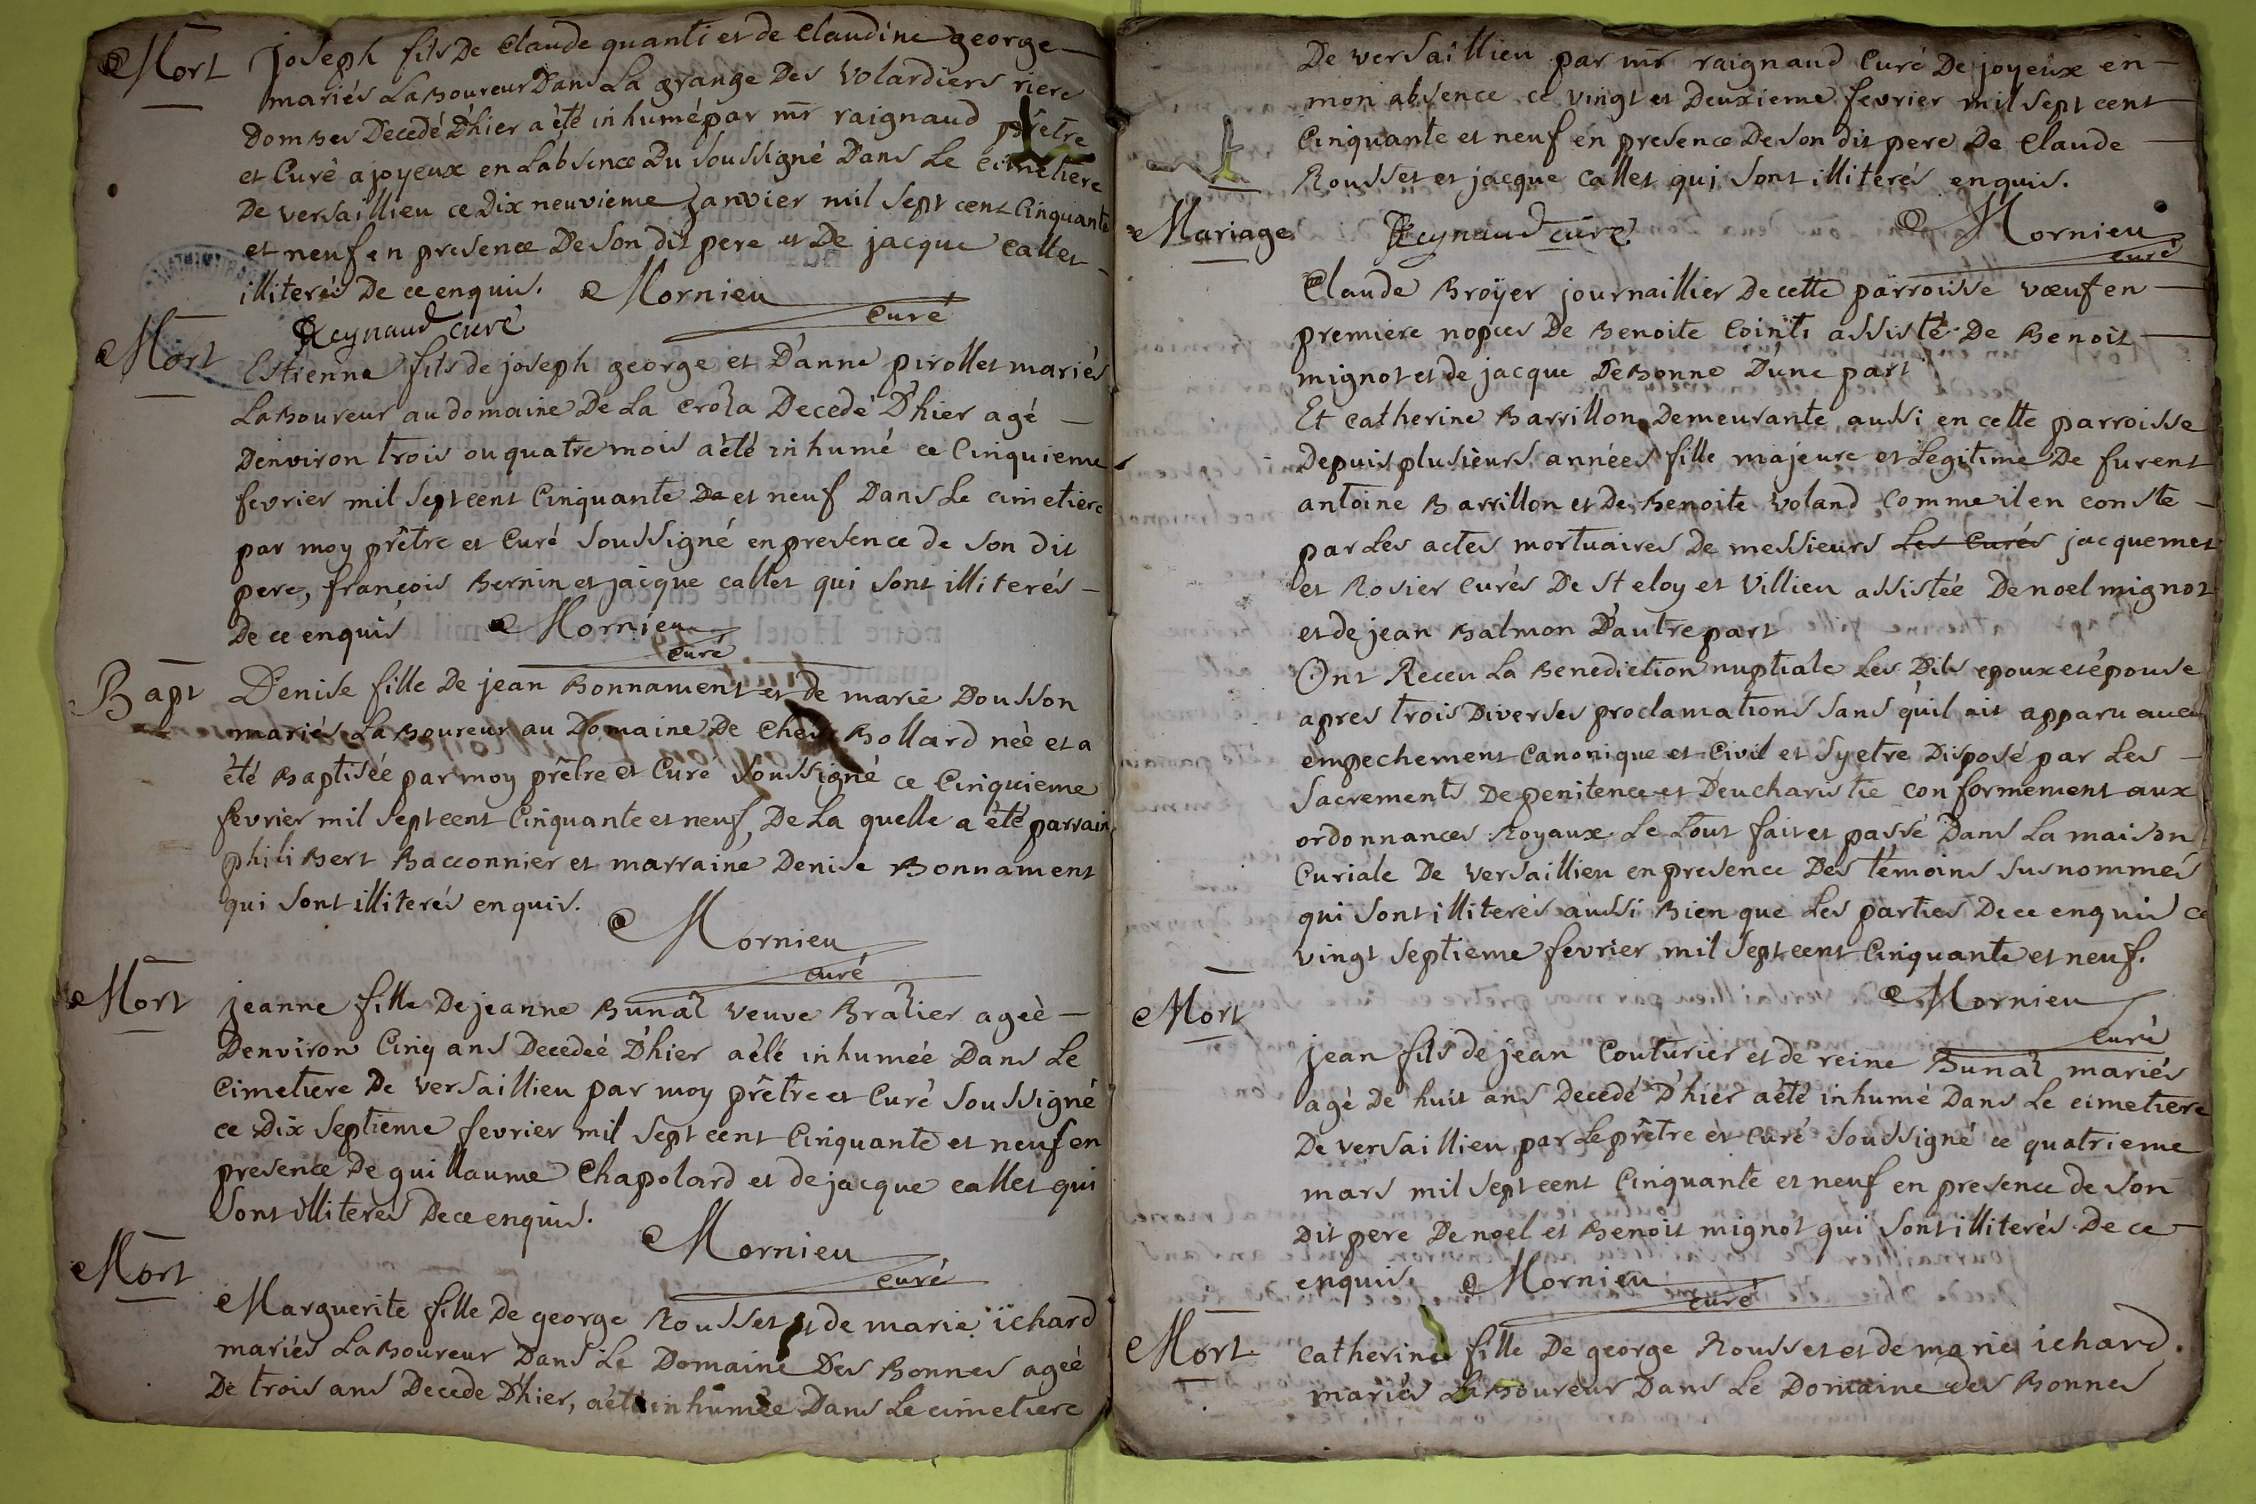 Mort
Joseph fils De Claude quanti et de Claudine george
mariés LaBoureur Dans La grange Des Volardiers riere
DomBes Decedé D'hier a été inhumé par mr raignaud prêtre
et Curé a joyeux en L'absence Du soussigné Dans Le cimetiere
De versaillieu ce Dix neuvieme janvier mil sept cent Cinquante
et neuf en presence De son dit pere et De jacque callet
illiterés De ce enquis. Mornieu
curé
Reynaud curé
Mort
Estienne fils de joseph george et D'anne pirollet mariés
LaBoureur au domaine De La Croza Decedé D'hier agé
D'environ trois ou quatre mois a été inhumé ce Cinquieme
fevrier mil sept cent Cinquante De et neuf Dans Le cimetiere
par moy prêtre et Curé soussigné en presence de son dit
pere, françois Bernin et jacque callet qui sont illiterés
De ce enquis Mornieu
curé
Bapt
Denise fille De jean Bonnament et de marie Dousson
mariés LaBoureur au Domaine De Chez Bollard née et a
été Baptisée par moy prêtre et Curé soussigné ce Cinquieme
fevrier mil sept cent Cinquante et neuf, De La quelle a été parrain
philiBert Bacconnier et marraine Denise Bonnament
qui sont illiterés enquis.
Mornieu
curé
Mort
jeanne fille De jeanne Bunaz veuve Brazier ageé
D'environ Cinq ans Decedeé D'hier a été inhumeé Dans Le
Cimetiere De versaillieu par moy prêtre et Curé soussigné
ce Dix septieme fevrier mil sept cent Cinquante et neuf en
presence De guillaume Chapolard et de jacque callet qui
sont illiterés De ce enquis.
Mornieu
curé
Mort
Marguerite fille De george Rousset et de marie ichard
mariés LaBoureur Dans Le Domaine Des Bonnes ageé
De trois ans Decede D'hier, a été inhumée Dans Le cimetiere
De versaillieu par mr raignaud Curé De joyeux en
mon absence ce vingt et Deuxieme fevrier mil sept cent
Cinquante et neuf en presence De son dit pere De Claude
Rousset et jacque callet qui sont illiterés enquis.
Reynaud curé Mornieu
curé
Mariage
Claude Broÿer journaillier De cette parroisse vœuf en
premiere nopces De Benoite Cointi assisté De Benoit
mignot et de jacque DeBonne D'une part
Et catherine Barrillon Demeurante aussi en cette parroisse
Depuis plusieurs années fille majeure et Legitime De furent
antoine Barrillon et De Benoite Voland Comme il en conste
par Les actes mortuaires De messieurs Les Curés jacquemet
et Rosier curés De St eloy et Villieu assistée De noel mignot
et de jean Balmon D'autre part
Ont Receu La Benediction nuptiale Les Dits epoux et épouse
apres trois Diverses proclamations sans qu'il ait apparu aucun
empechement Canonique et Civil et s'y etre Disposé par Les
Sacrements De penitence et D'eucharistie conformement aux
ordonnances Royaux Le Tout fait et passé Dans La maison
Curiale De versaillieu en presence Des temoins susnommés
qui sont illiterés aussi Bien que Les parties De ce enquis ce
vingt septieme fevrier mil sept cent Cinquante et neuf.
Mornieu
curé
Mort
jean fils de jean Couturier et de reine Bunaz mariés
agé De huit ans Decedé D'hier a été inhumé Dans Le cimetiere
De versaillieu par Le prêtre et Curé soussigné ce quatrieme
mars mil sept cent Cinquante et neuf en presence de son
Dit pere De noel et Benoit mignot qui sont illiterés De ce
enquis. Mornieu
curé
Mort
Catherine fille De george Rousset et de marie ichard.
mariés LaBoureur Dans Le Domaine des Bonnes